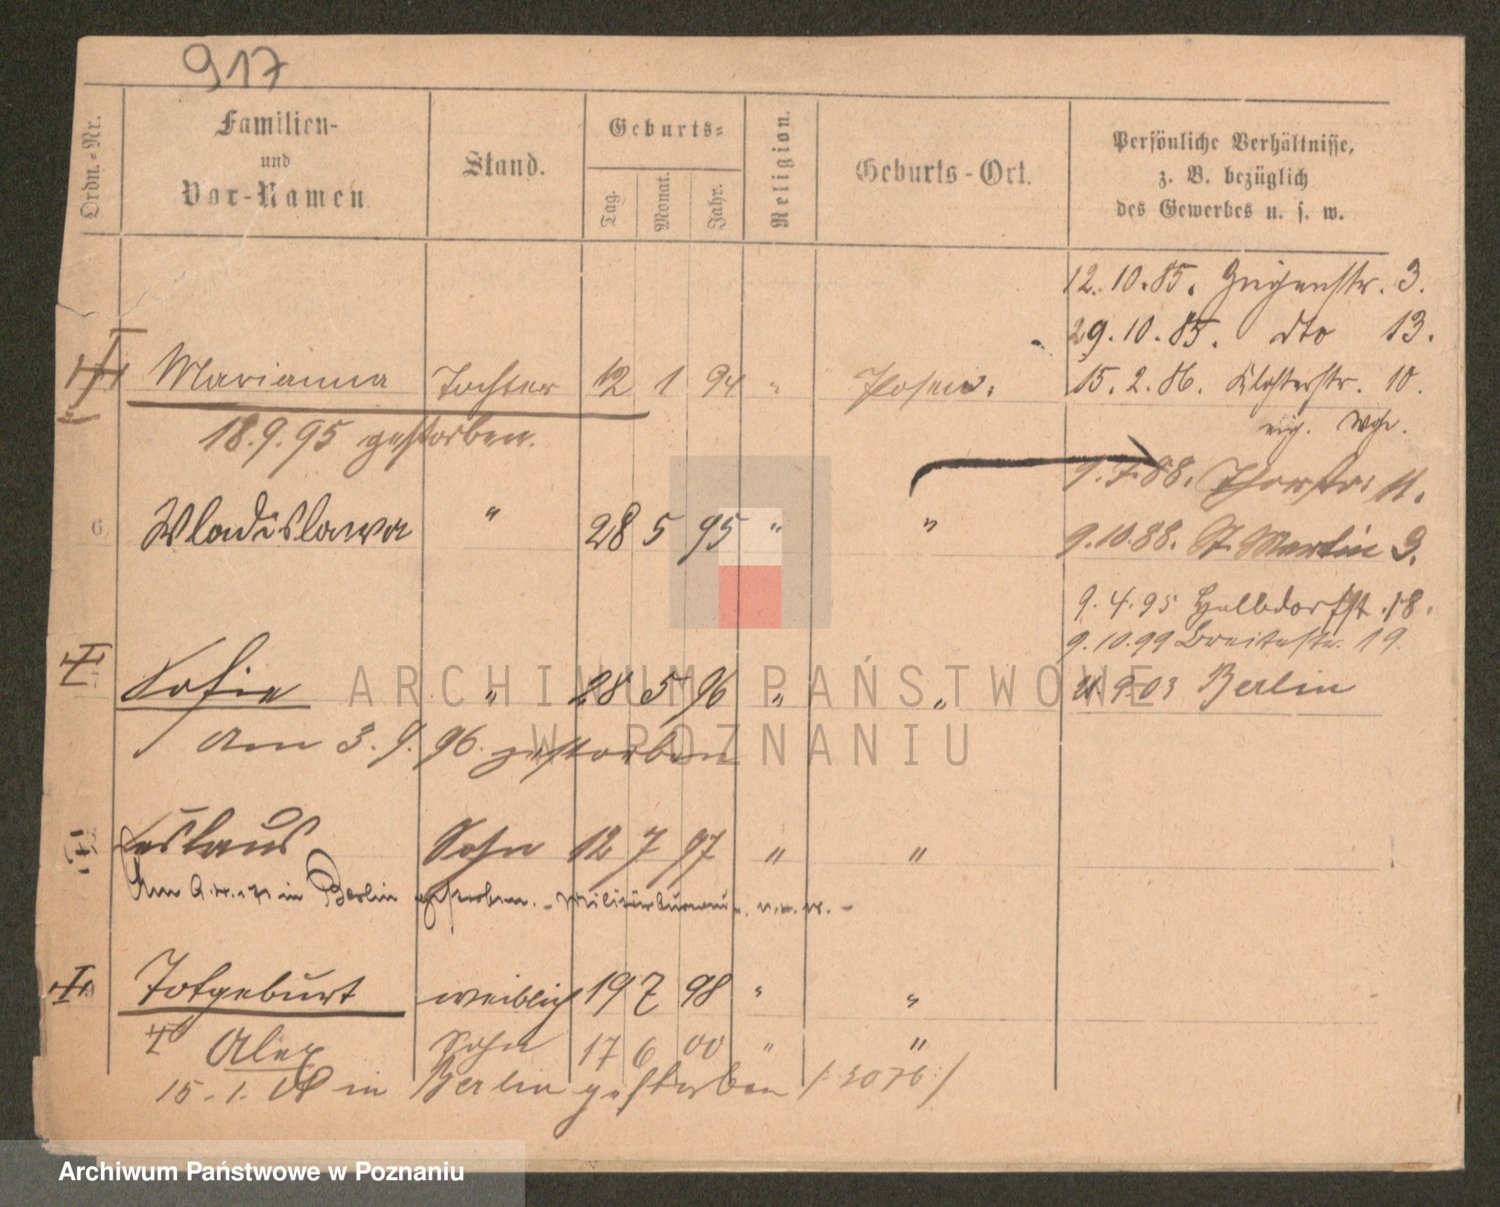 917
Ordn.-Nr.
Familien-
und
Vor-Namen
Stand.
Geburts-
Tag.
Monat.
Jahr.
Religion.
Geburts-Ort.
Persönliche Verhältnisse,
z. B. bezüglich
des Gewerbes u. s. w.
12. 10. 85. 3.
29. 10. 85. dto 13.
Marianna Tochter 12 1 94 " Posen.
15. 2. 86. Klosterstr. 10.
eig. Whg.
18. 9. 95 gestorben.
9. 7. 88. Thorstr. 11.
6 Wladislawa " 28 5 95 " "
9. 10. 88. St. Martin 3.
9. 4. 95 Halbdorfstr. 18.
9. 10. 99 Breitestr. 19.
Sofie " 28 5 96 " "
9. 03 Berlin
Am 3. 9. 96. gestorben
Ceslaus Sohn 12 7 97 " "
Am in Berlin gestorben. -
Totgeburt weiblich 19 7 98 " "
Alex Sohn 17 6 00 " "
15. 1. in Berlin gestorben /: 3076 :/
ARCHIWUM PAŃSTWOWE
W POZNANIU
Archiwum Państwowe w Poznaniu